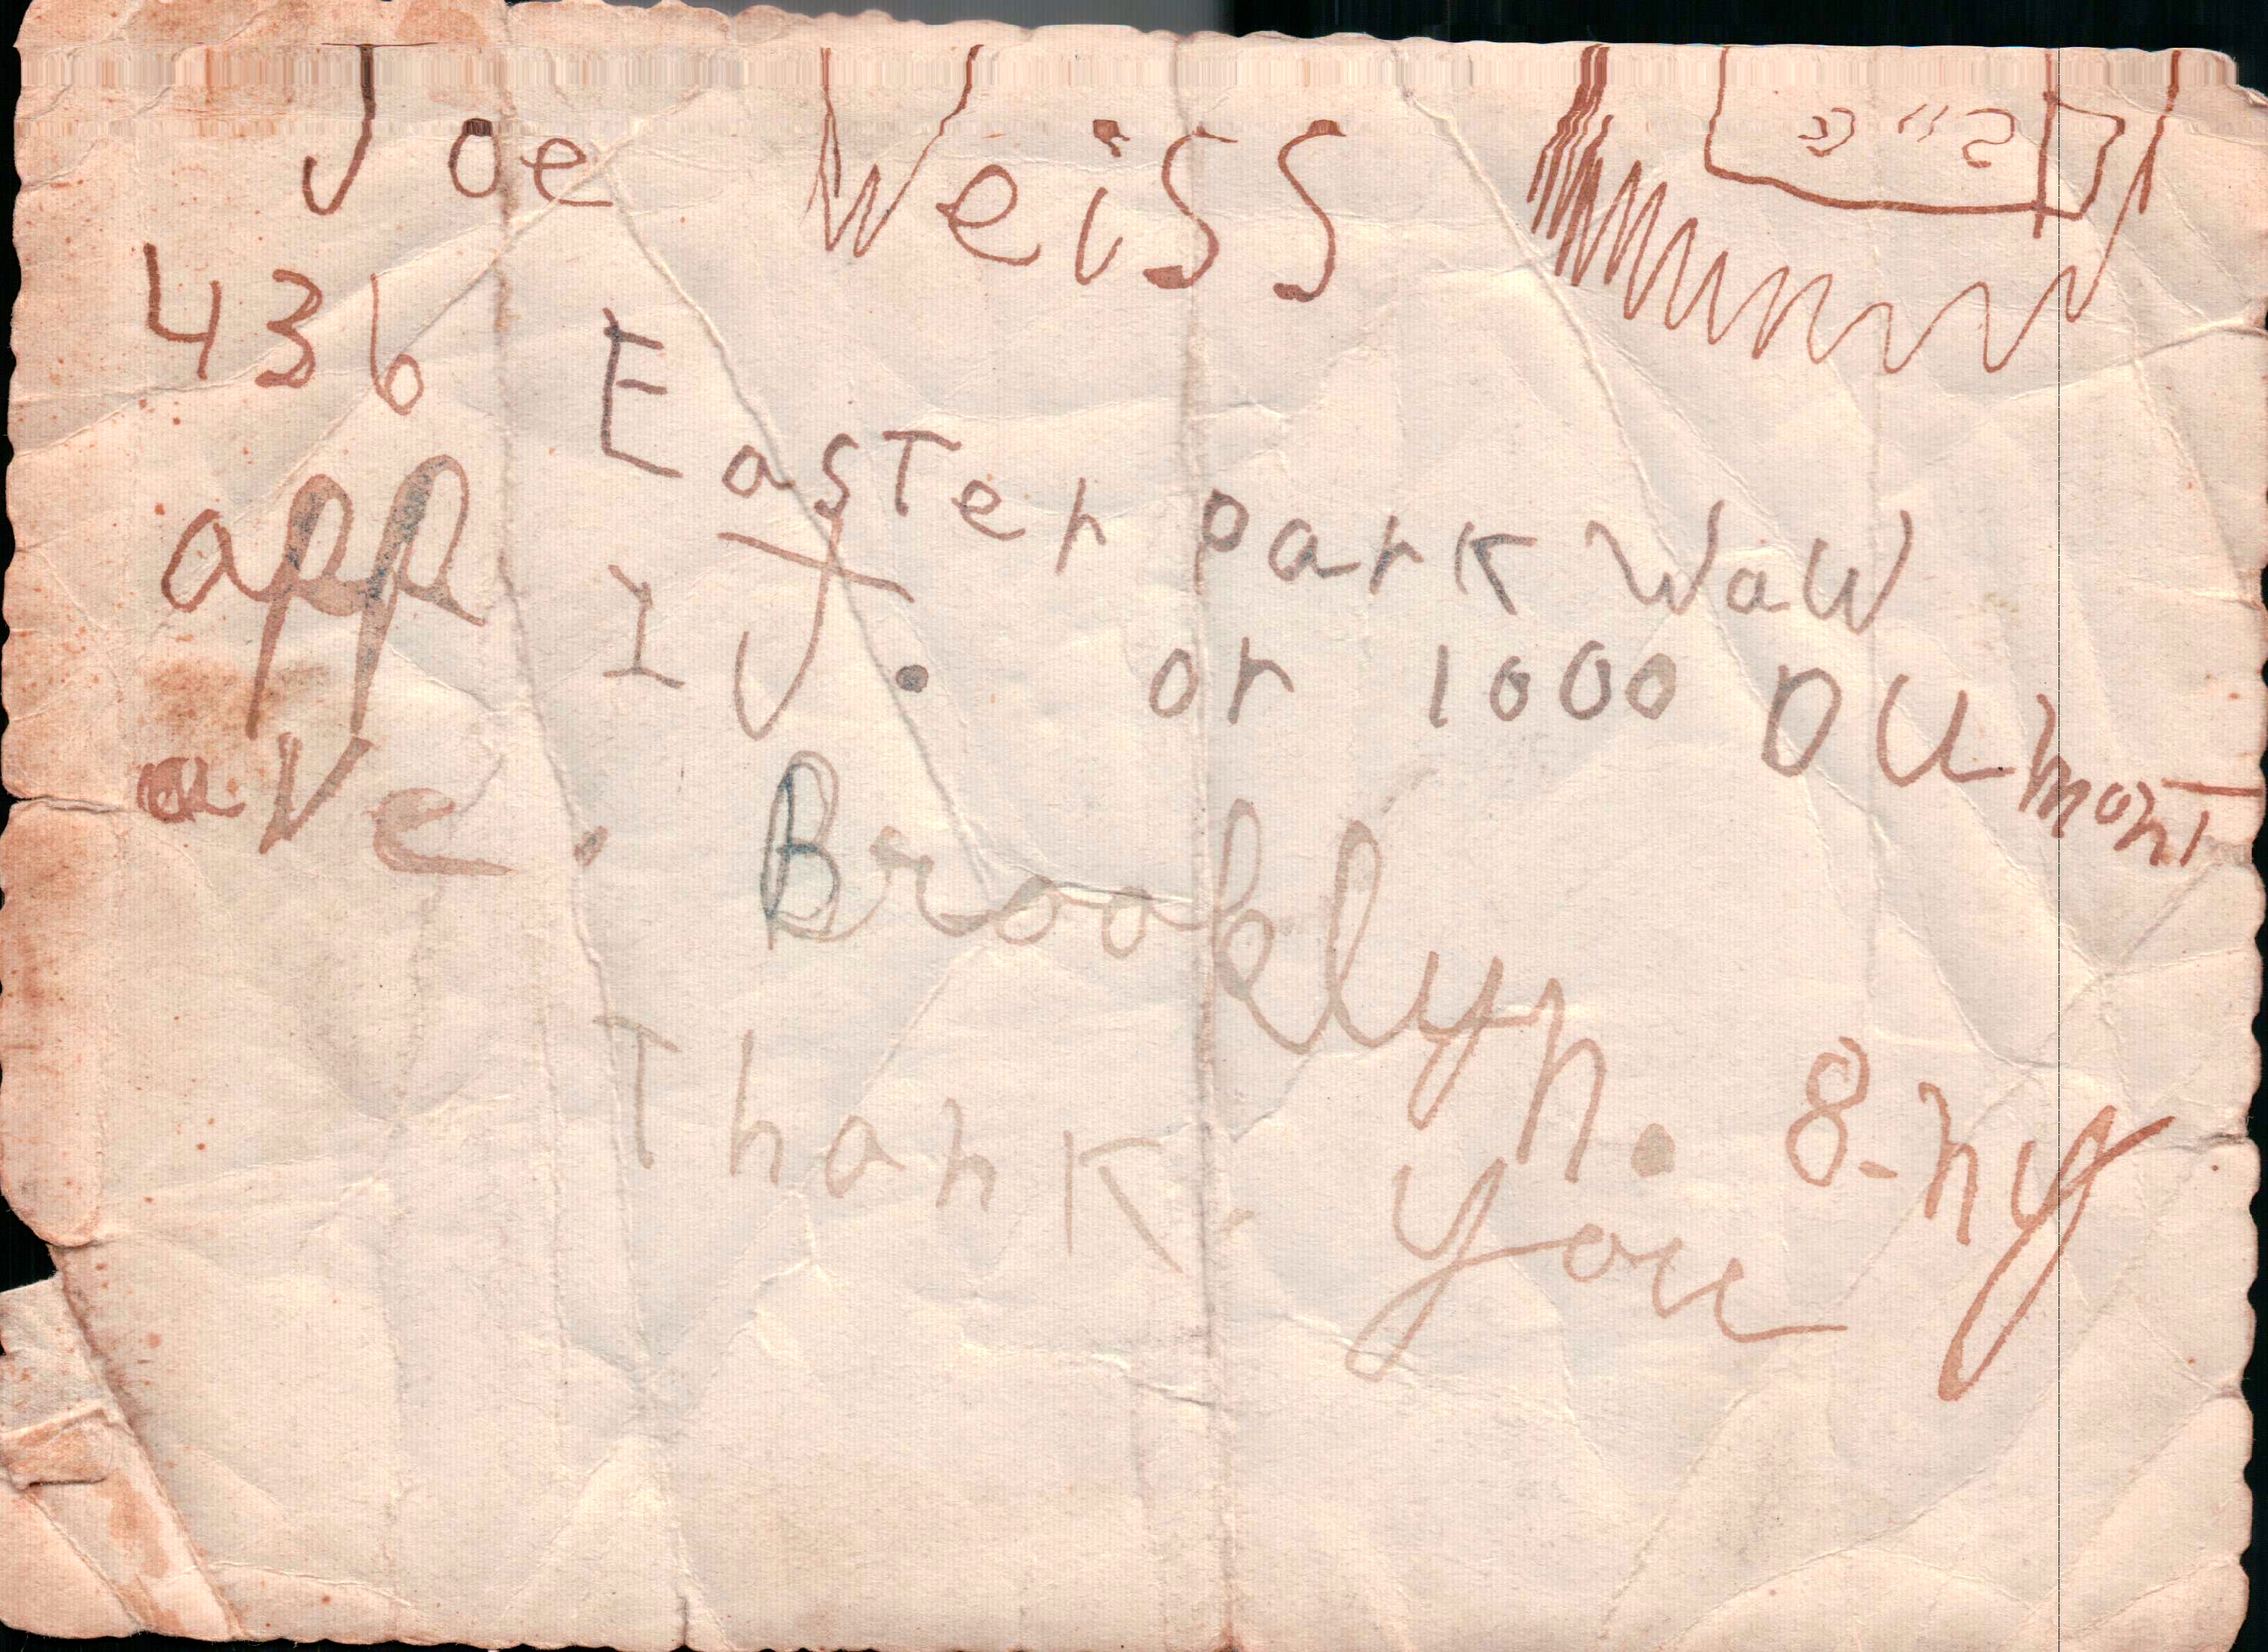 Joe Weiss
436 Easter parkwaw
app 1J. or 1000 DUmont
ave. Brooklyn. 8-ny
Thank you